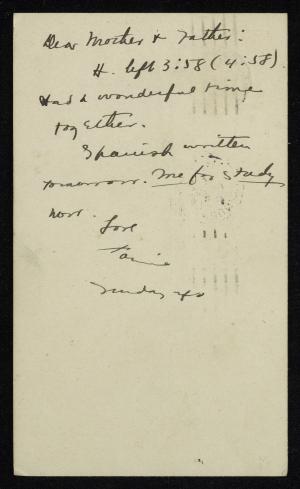 Dear Mother & Father:
H. left 3:58 (4:58).
Had a wonderful time
together.
Spanish written
tomorrow. Me for study
now.
Love
Sunday